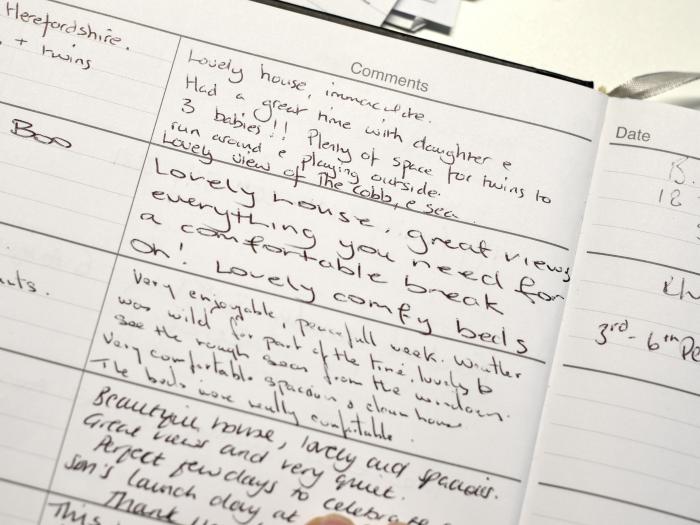 Herefordshire.
+ twins
Boo
Comments
Lovely house, immaculate.
Had a great time with daughter &
3 babies!! Plenty of space for twins to
run around & playing outside.
Lovely view of The Cobb, & sea
Lovely house, great views
everything you need for
a comfortable break
Oh! Lovely comfy beds
Very enjoyable, peacefull week. Weather
was wild for part of the time. lovely to
see the rough seas from the windows.
Very comfortable spacious & clean home
The beds were really comfortable.
Beautiful house, lovely and spacious.
Great views and very quiet.
Perfect few days to celebrate
son's launch day at
Thank
This
Date
18
3rd - 6th De